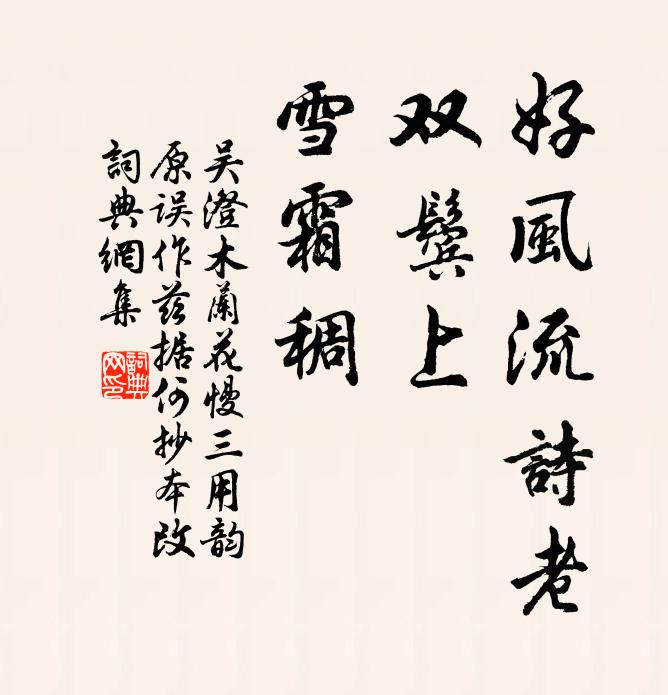 好風流詩老
双鬢上
雪霜稠
吴澄木蘭花慢三用韵
原误作兹据何抄本改
詞典網集
詞典
网印